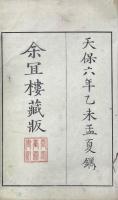 天保六年乙未孟夏鐫
余宜樓藏版